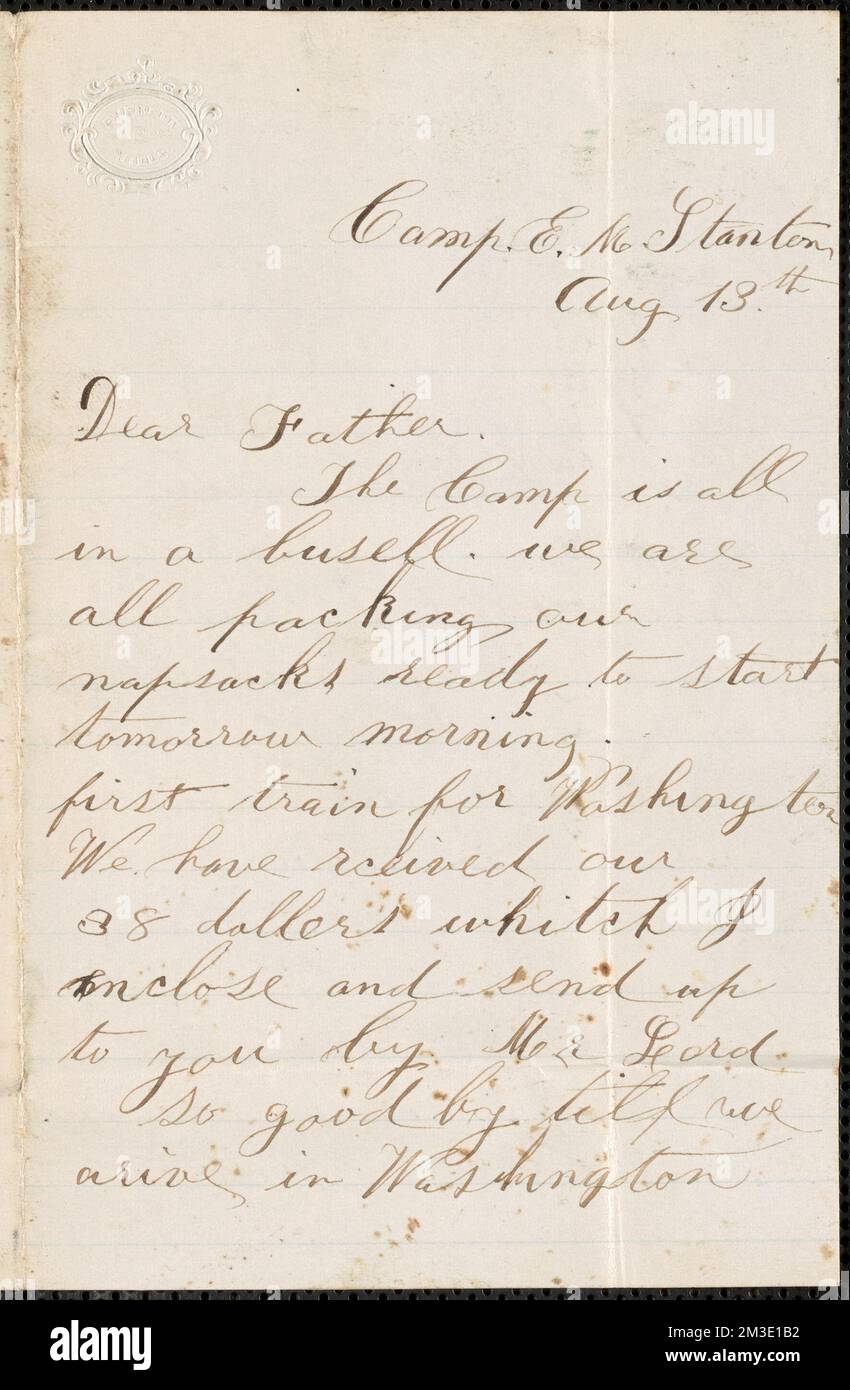 Camp. E. M. Stanton
Aug 13.th
Dear Father.
The Camp is all
in a busell. we are
all packing our
napsacks ready to start
tomorrow morning.
first train for Washington
We have rceived our
38 dollers whitch I
enclose and send up
to you by Mr Lord
so good by till we
arive in Washington
alamy
Image ID: 2M3E1B2
www.alamy.com